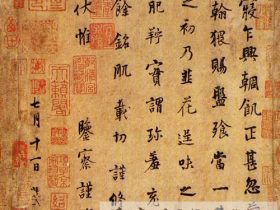 寢乍興輖飢正甚忽
翰猥賜盤飧當一
之初乃韭花逞味之
肥羜實謂珍羞充
餘銘肌載切謹修
伏惟
鑒察謹
七月十一日狀